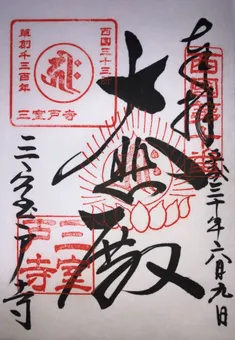 奉拝
平成三十年六月九日
大悲殿
三室戸寺
西国三十三所
草創千三百年
三室戸寺
三室
戸寺